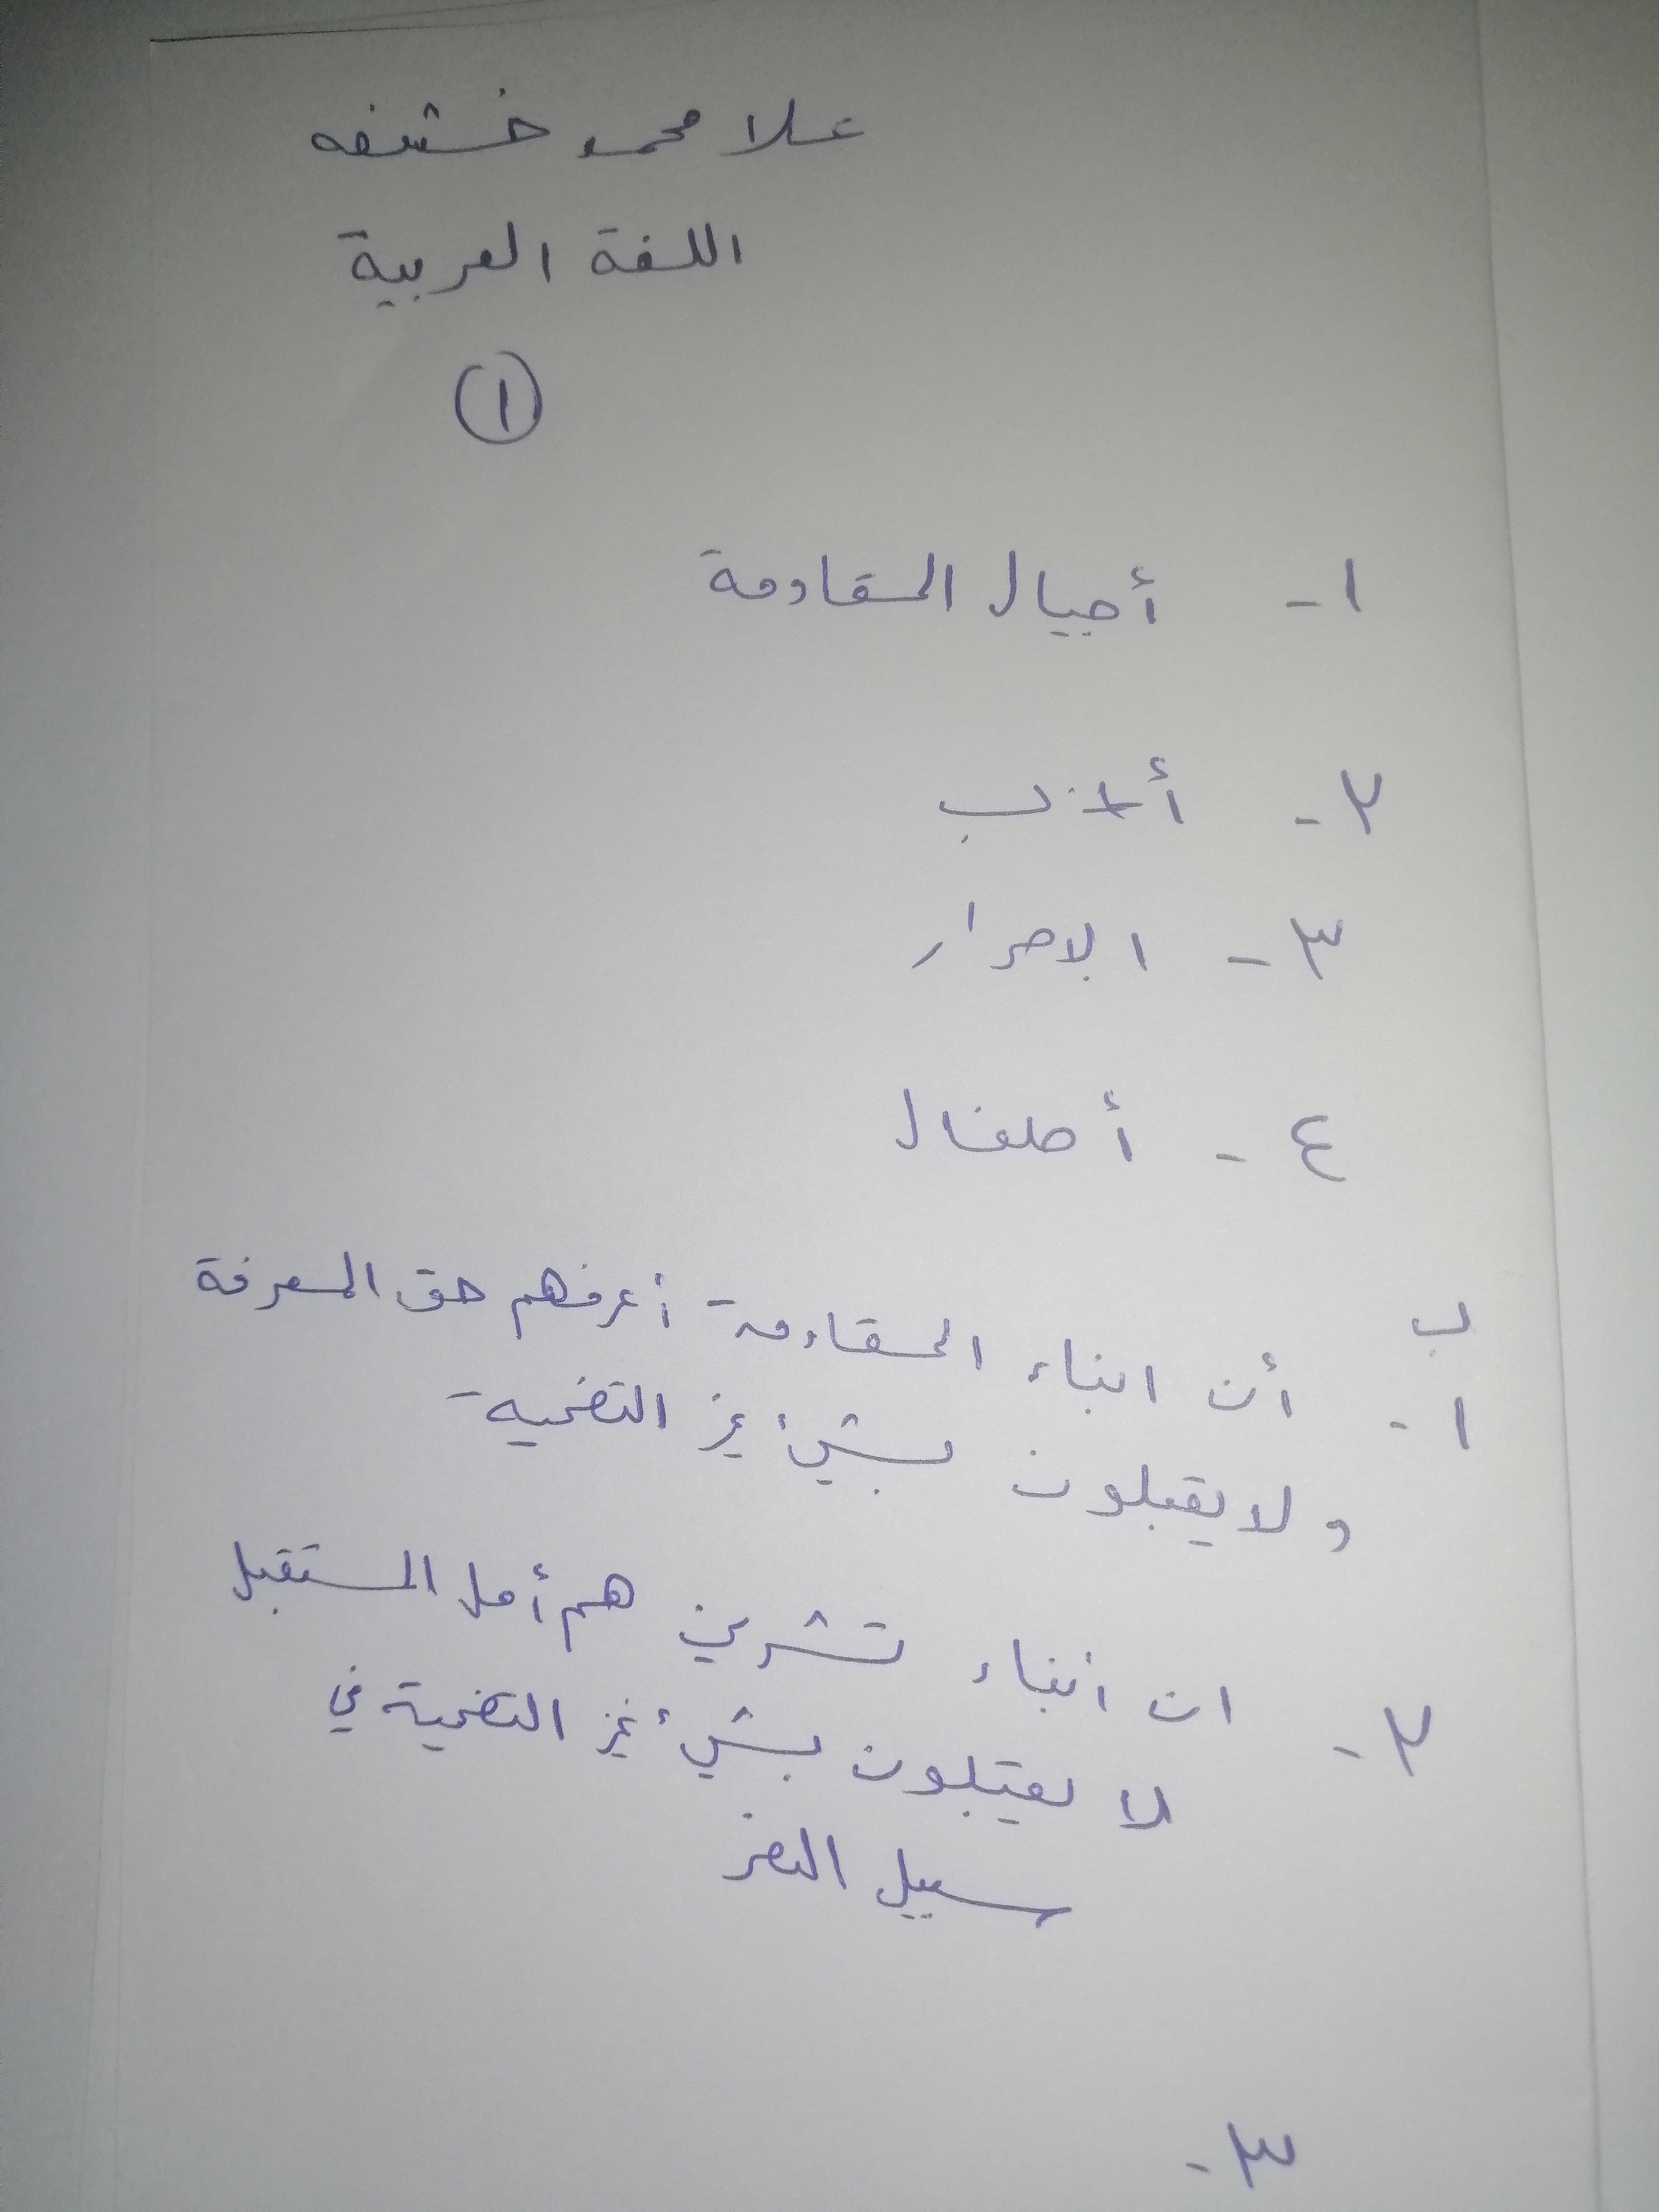 علا محمد خشفه
اللغة العربية
١
١- أجيال المقاومة
٢-
٣- الاحرار
٤- أطفال
ب
١- أن ابناء المقاومة أعرفهم حق المعرفة
ولا يقبلون بشيء غير التضحية
٢- ان أبناء تشرين هم أمل المستقبل
لا يقبلون بشيء غير التضحية في
سبيل النصر
٣-